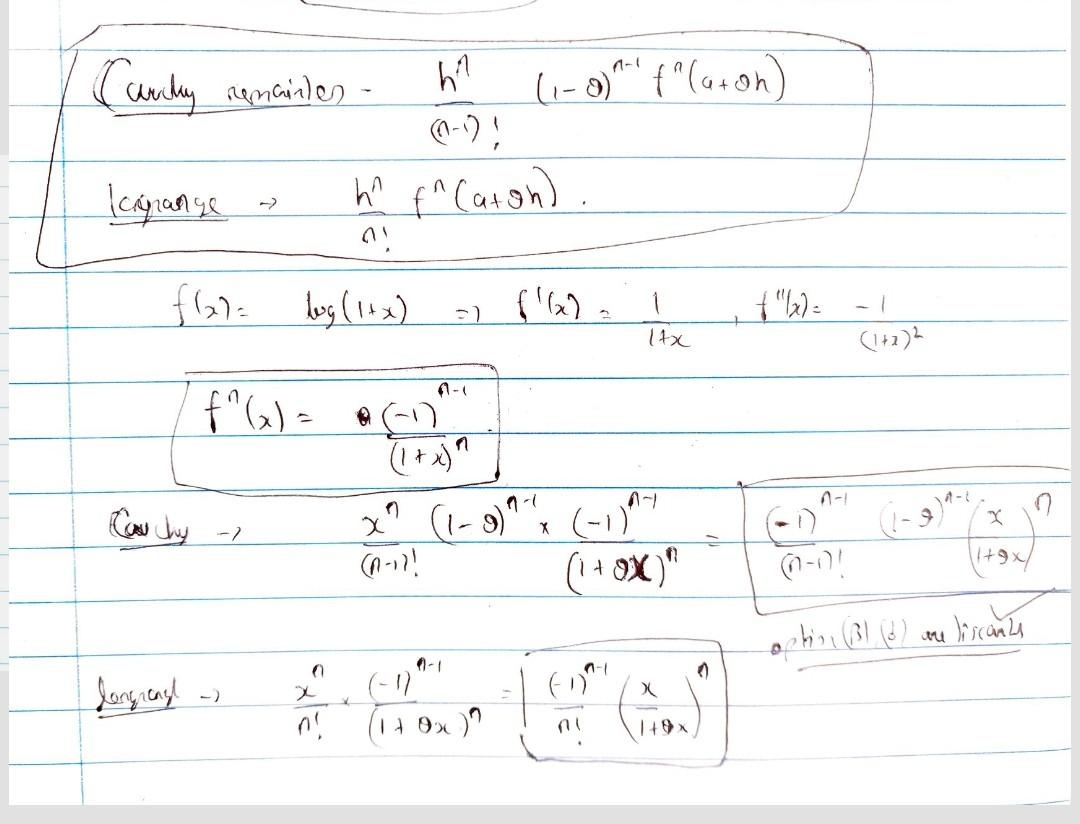 Cauchy remainder - h^n/(n-1)! (1-θ)^(n-1) f^n(a+θh)
lagrange → h^n/n! f^n(a+θh).
f(x) = log(1+x) => f'(x) = 1/(1+x), f''(x) = -1/(1+x)^2
f^n(x) = (-1)^(n-1)/(1+x)^n
Cauchy → x^n/(n-1)! (1-θ)^(n-1) × (-1)^(n-1)/(1+θx)^n = (-1)^(n-1)/(n-1)! (1-θ)^(n-1) (x/(1+θx))^n
option (B) (d) are discards
langrangl → x^n/n! × (-1)^(n-1)/(1+θx)^n = (-1)^(n-1)/n! (x/(1+θx))^n